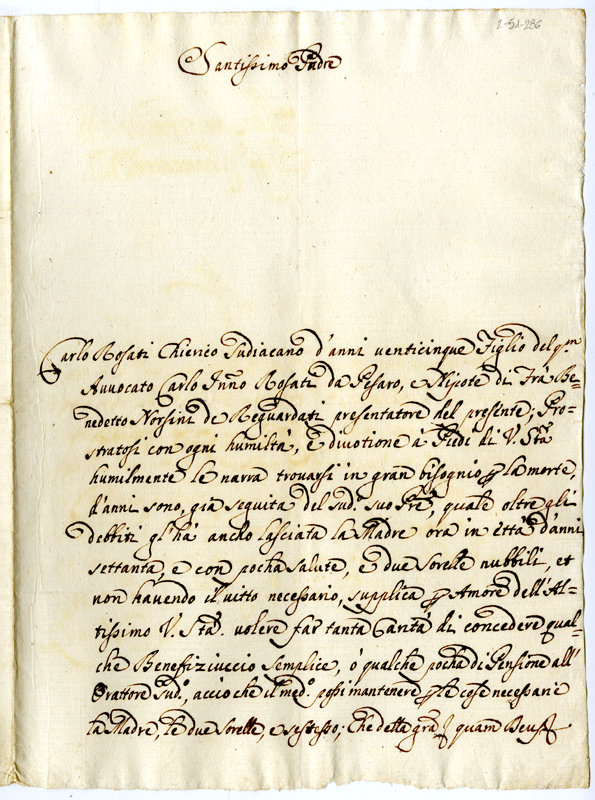 2-51-286
Santissimo Padre
Carlo Rosati Chierico Sudiacano d'anni venticinque Figlio del qm
Avvocato Carlo Inno Rosati da Pesaro, e Nipote di Fra Be=
nedetto Norsini de Reguardati presentatore del presente, Pro=
stratosi con ogni humiltà, e divotione a Piedi di V. Stà
humilmente le narra trovarsi in gran bisognio p la morte,
d'anni sono, già seguita del sud.º suo Pre, quale oltre gli
debbiti gl'hà ancho lasciata la Madre ora in età d'anni
settanta, e con pocha salute, e due Sorelle nubbili, et
non havendo il vitto necessario, supplica p Amore dell'Al=
tissimo V. Stà. volere far tanta Carità di concedere qual=
che Benefiziuccio Semplice, ò qualche pocha di Pensione all'
Orattore Sud.º, acciò che il med.º possi mantenere p le cose necessarie
la Madre, le due Sorelle, e se stesso; Che della gra quam Deus